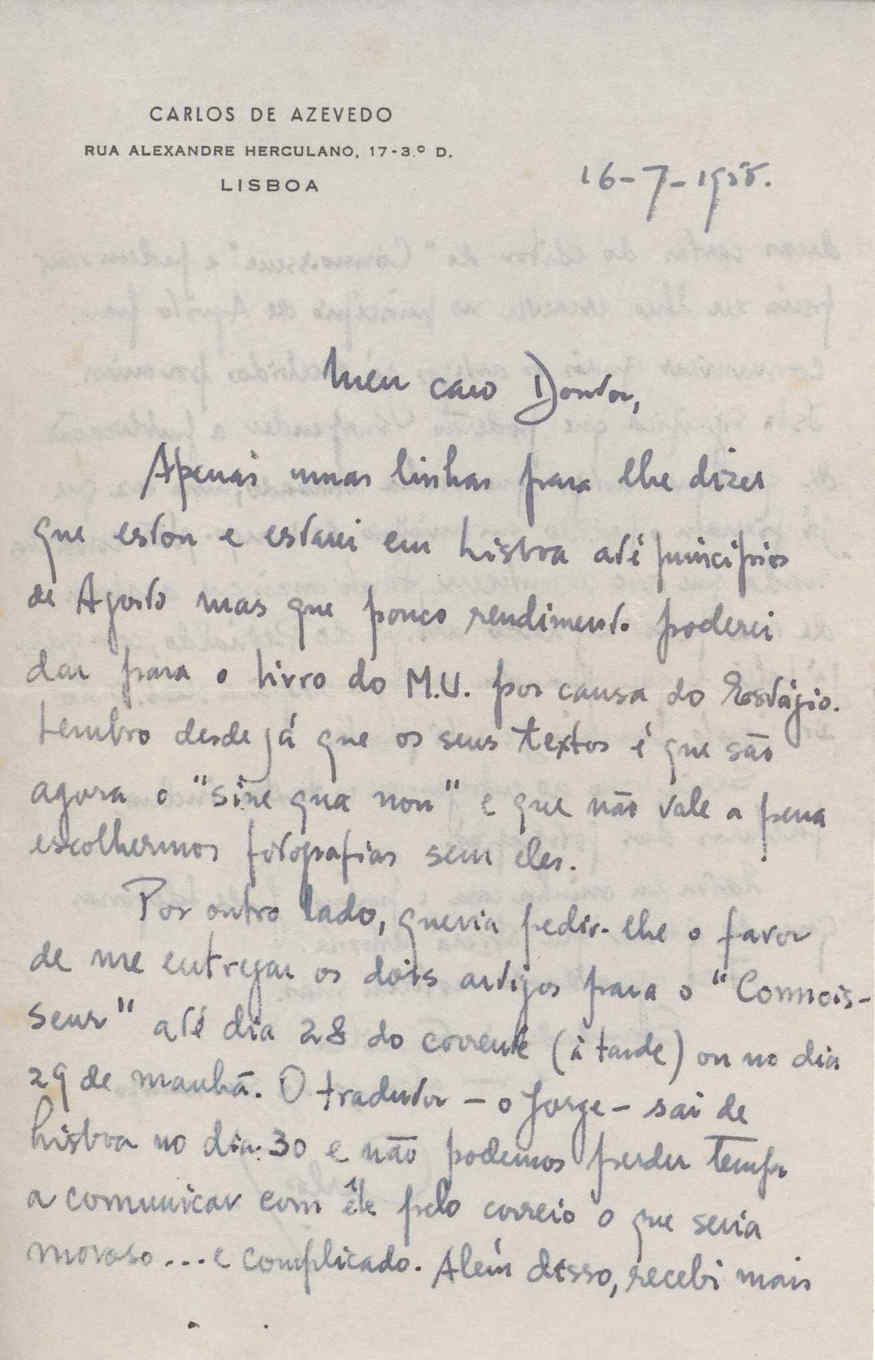 CARLOS DE AZEVEDO
RUA ALEXANDRE HERCULANO, 17-3.º D.
LISBOA
16-7-1955.
Meu caro Doutor,
Apenas umas linhas para lhe dizer
que estou e estarei em Lisboa até principios
de Agosto mas que pouco rendimento poderei
dar para o livro do M.U. por causa do Estágio.
Lembro desde já que os seus textos é que são
agora o "sine qua non" e que não vale a pena
escolhermos fotografias sem eles.
Por outro lado, queria pedir-lhe o favor
de me entregar os dois artigos para o "Connois-
seur" até dia 28 do corrente (à tarde) ou no dia
29 de manhã. O tradutor - o Jorge - sai de
Lisboa no dia 30 e não podemos perder tempo
a comunicar com êle pelo correio o que seria
moroso... e complicado. Além disso, recebi mais